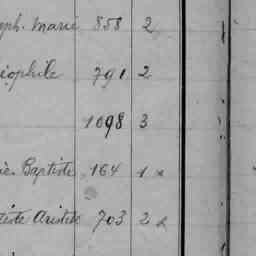 eph. Marie 858 2
iophile 791 2
1098 3
ie. Baptiste 164 1 x
tiste Aristide 703 2 x